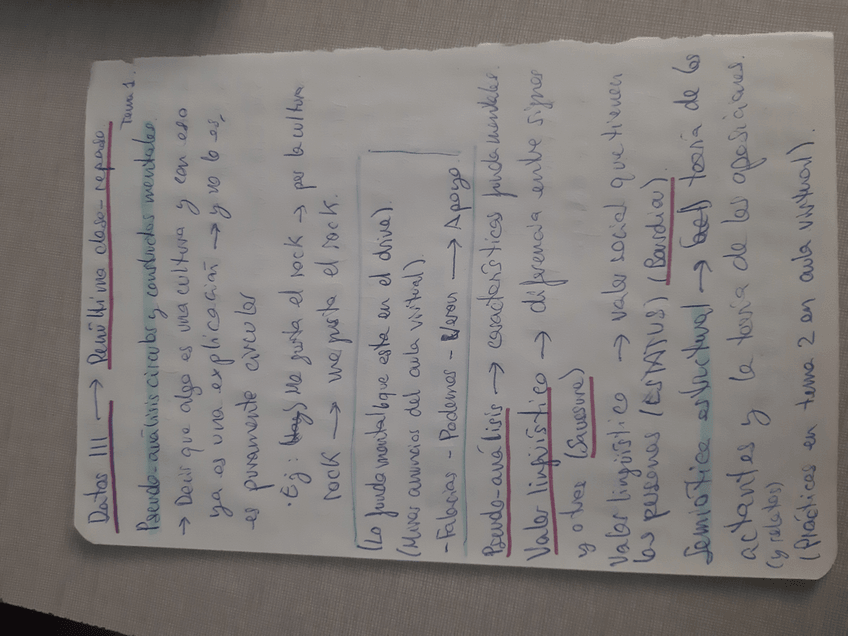 Datos III → Penúltima clase - repaso
Tema 1.
Pseudo-análisis circular y constructos mentales.
→ Decir que algo es una cultura y con eso
ya es una explicación → y no lo es,
es puramente circular
· Ej: Me gusta el rock → por la cultura
rock → me gusta el rock.
(Lo fundamental que esta en el drive)
(Mirar anuncios del aula virtual).
- Falacias - Podemos - Veron → Apoyo.
Pseudo-análisis → características fundamentales.
Valor lingüístico → diferencia entre signos
y otros (Saussure)
Valor lingüístico → valor social que tienen
las personas (ESTATUS) (Bourdieu).
Semiótica estructural → teoría de los
actantes y la teoría de las oposiciones.
(y relatos)
(Prácticas en tema 2 en aula virtual).